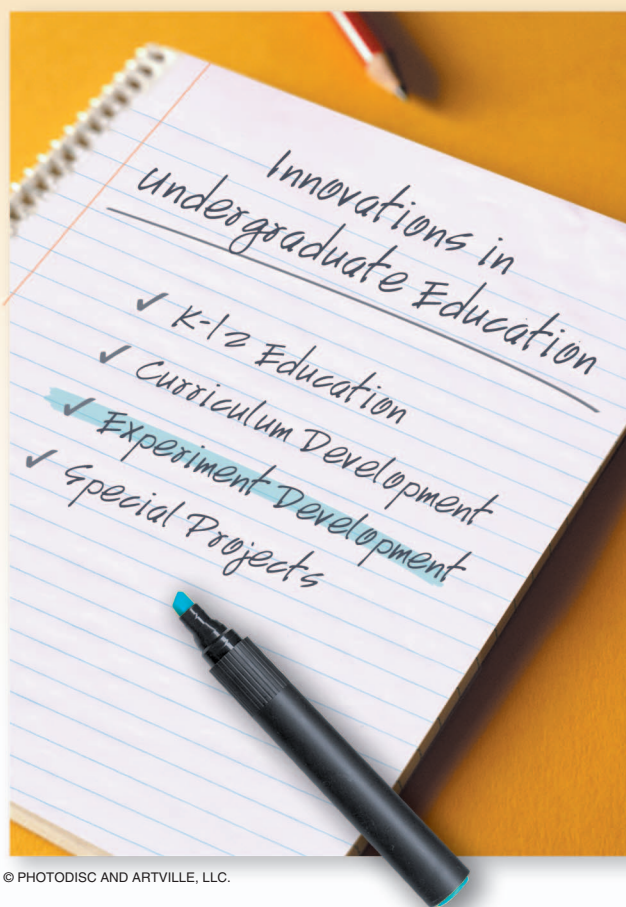 Innovations in
Undergraduate Education
✓ K-12 Education
✓ Curriculum Development
✓ Experiment Development
✓ Special Projects
© PHOTODISC AND ARTVILLE, LLC.